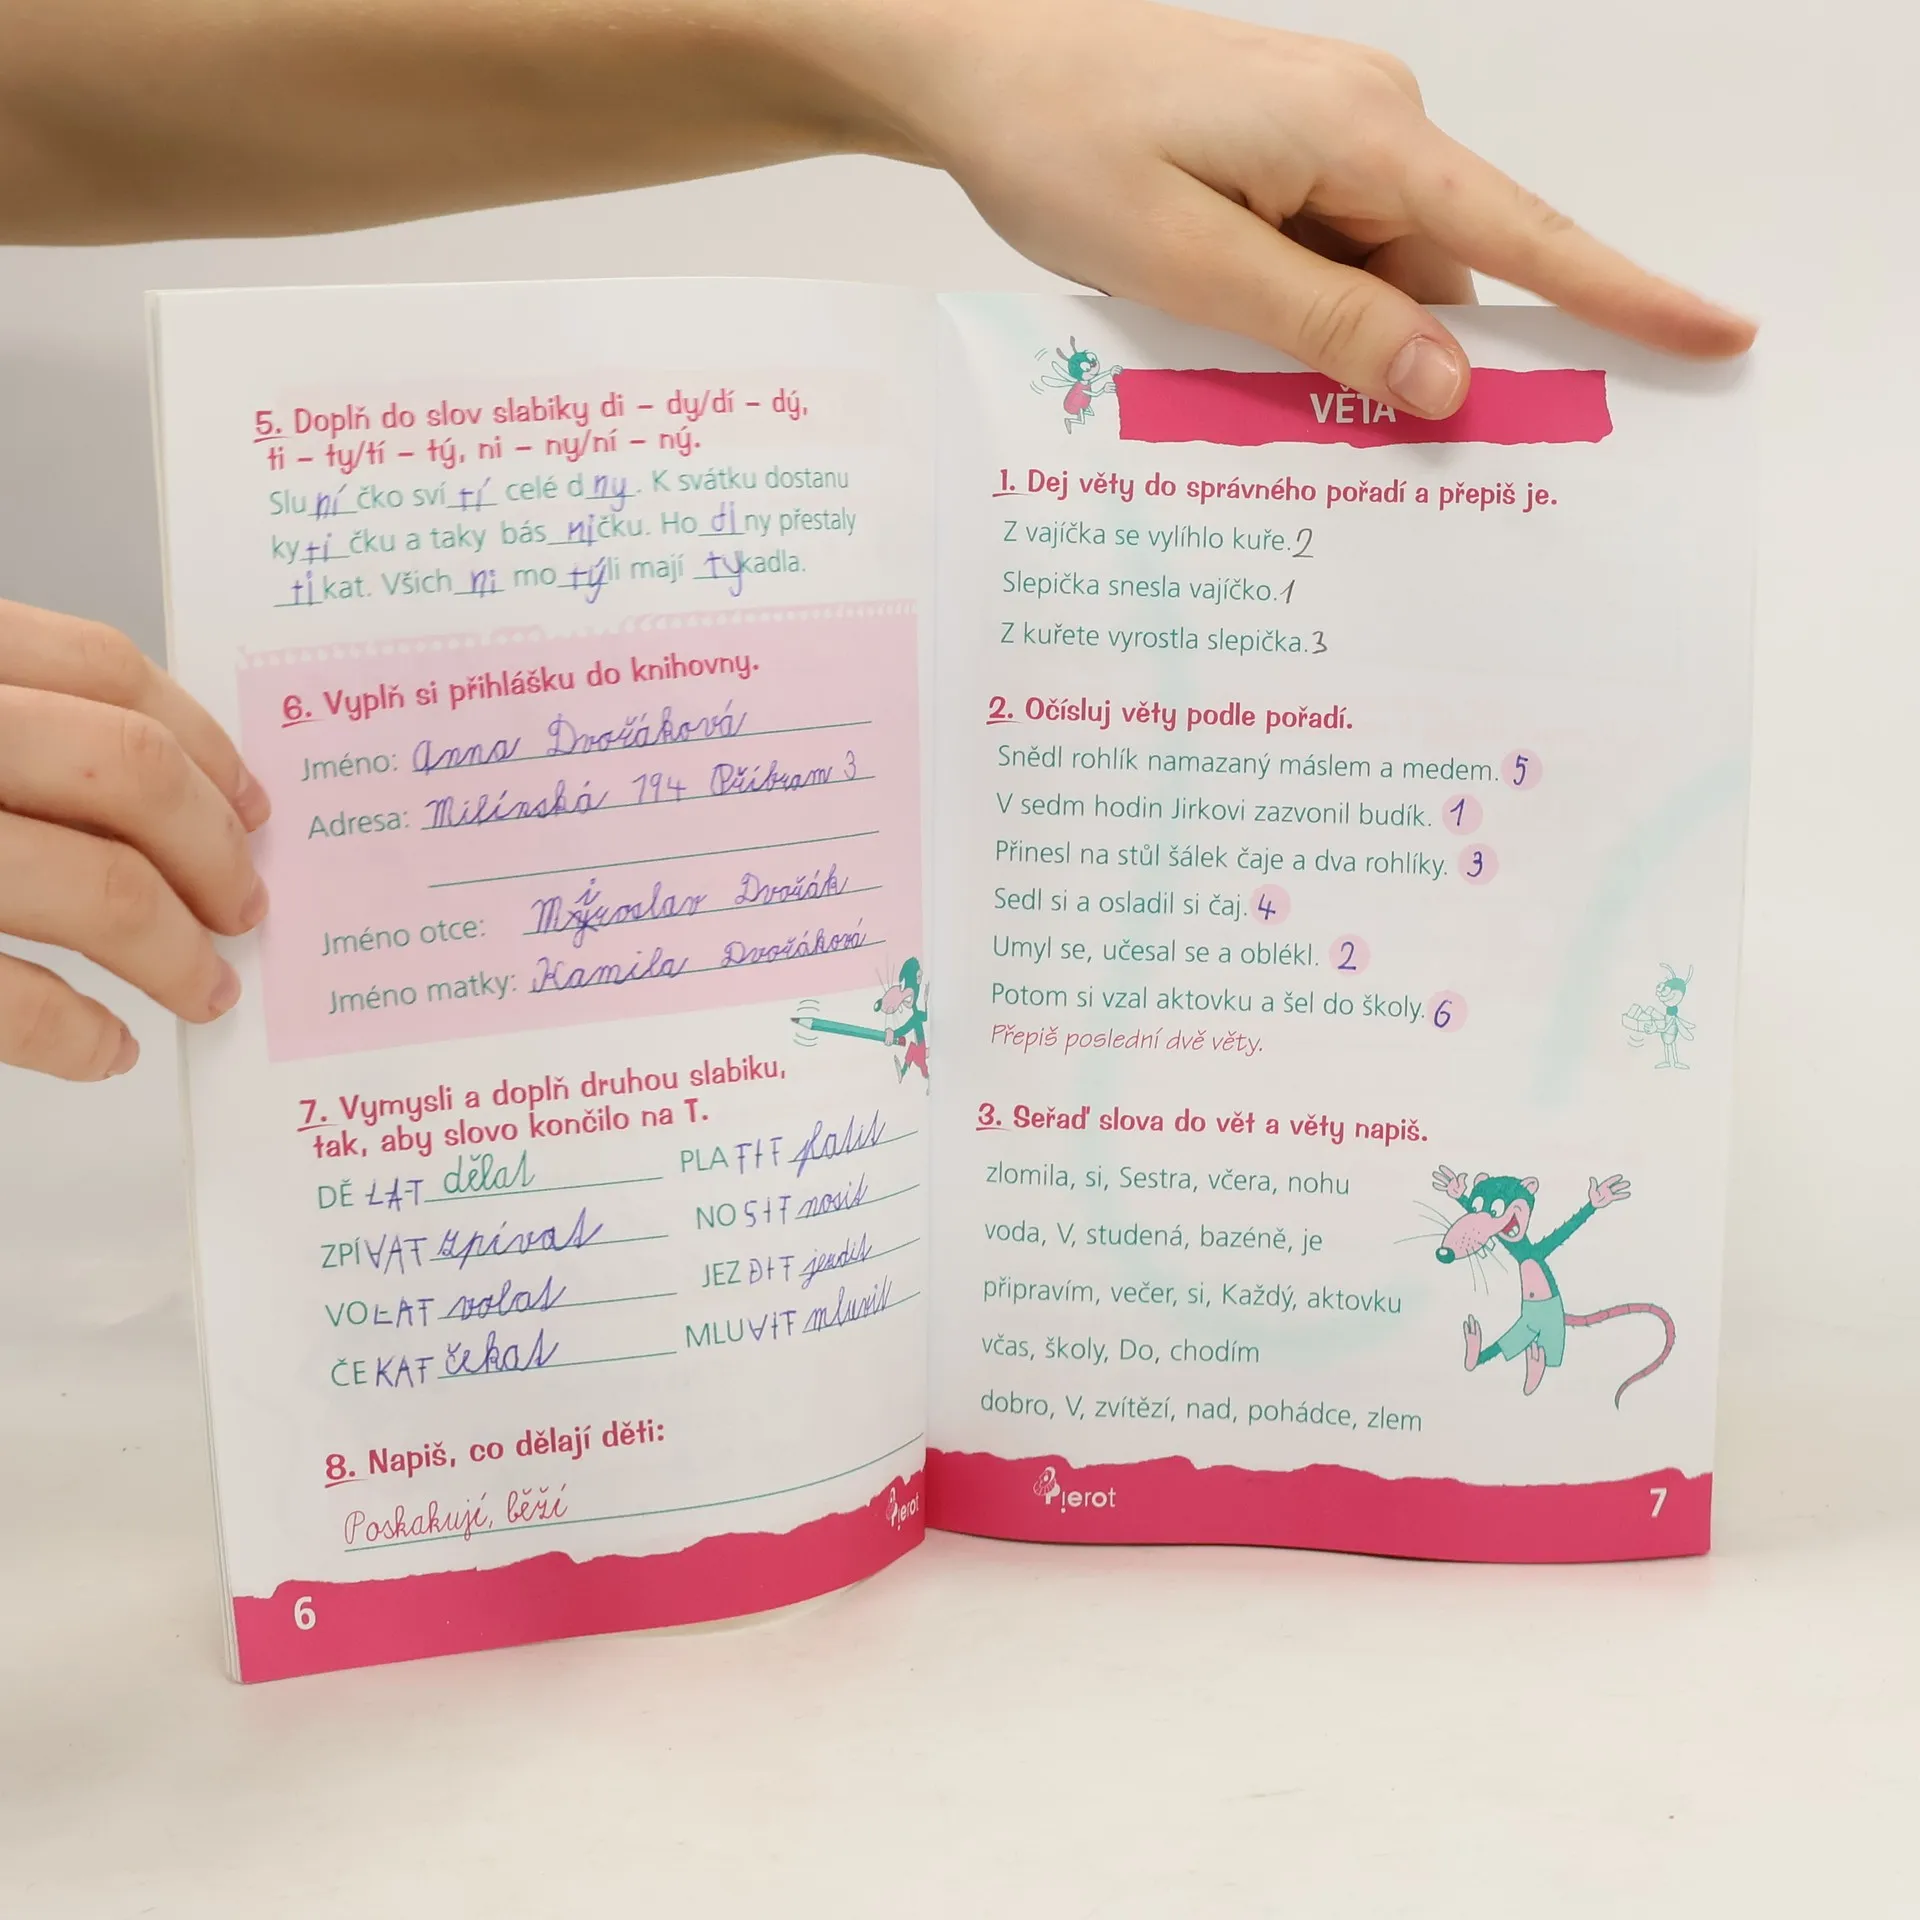 5. Doplň do slov slabiky di – dy/dí – dý,
ti – ty/tí – tý, ni – ny/ní – ný.
Slu ní čko sví tí celé d ny. K svátku dostanu
ky ti čku a taky bás ničku. Ho di ny přestaly
ti kat. Všich ni mo týli mají tykadla.
6. Vyplň si přihlášku do knihovny.
Jméno: Anna Dvořáková
Adresa: Milínská 194 Příbram 3
Jméno otce: Miroslav Dvořák
Jméno matky: Kamila Dvořáková
7. Vymysli a doplň druhou slabiku,
tak, aby slovo končilo na T.
DĚ LAT dělat
PLA TIT platit
ZPÍVAT zpívat
NO SIT nosit
VOLAT volat
JEZ DIT jezdit
ČE KAT čekat
MLUVIT mluvit
8. Napiš, co dělají děti:
Poskakují, běží
Pierot
6
VĚTA
1. Dej věty do správného pořadí a přepiš je.
Z vajíčka se vylíhlo kuře. 2
Slepička snesla vajíčko. 1
Z kuřete vyrostla slepička. 3
2. Očísluj věty podle pořadí.
Snědl rohlík namazaný máslem a medem. 5
V sedm hodin Jirkovi zazvonil budík. 1
Přinesl na stůl šálek čaje a dva rohlíky. 3
Sedl si a osladil si čaj. 4
Umyl se, učesal se a oblékl. 2
Potom si vzal aktovku a šel do školy. 6
Přepiš poslední dvě věty.
3. Seřaď slova do vět a věty napiš.
zlomila, si, Sestra, včera, nohu
voda, V, studená, bazéně, je
připravím, večer, si, Každý, aktovku
včas, školy, Do, chodím
dobro, V, zvítězí, nad, pohádce, zlem
Pierot
7